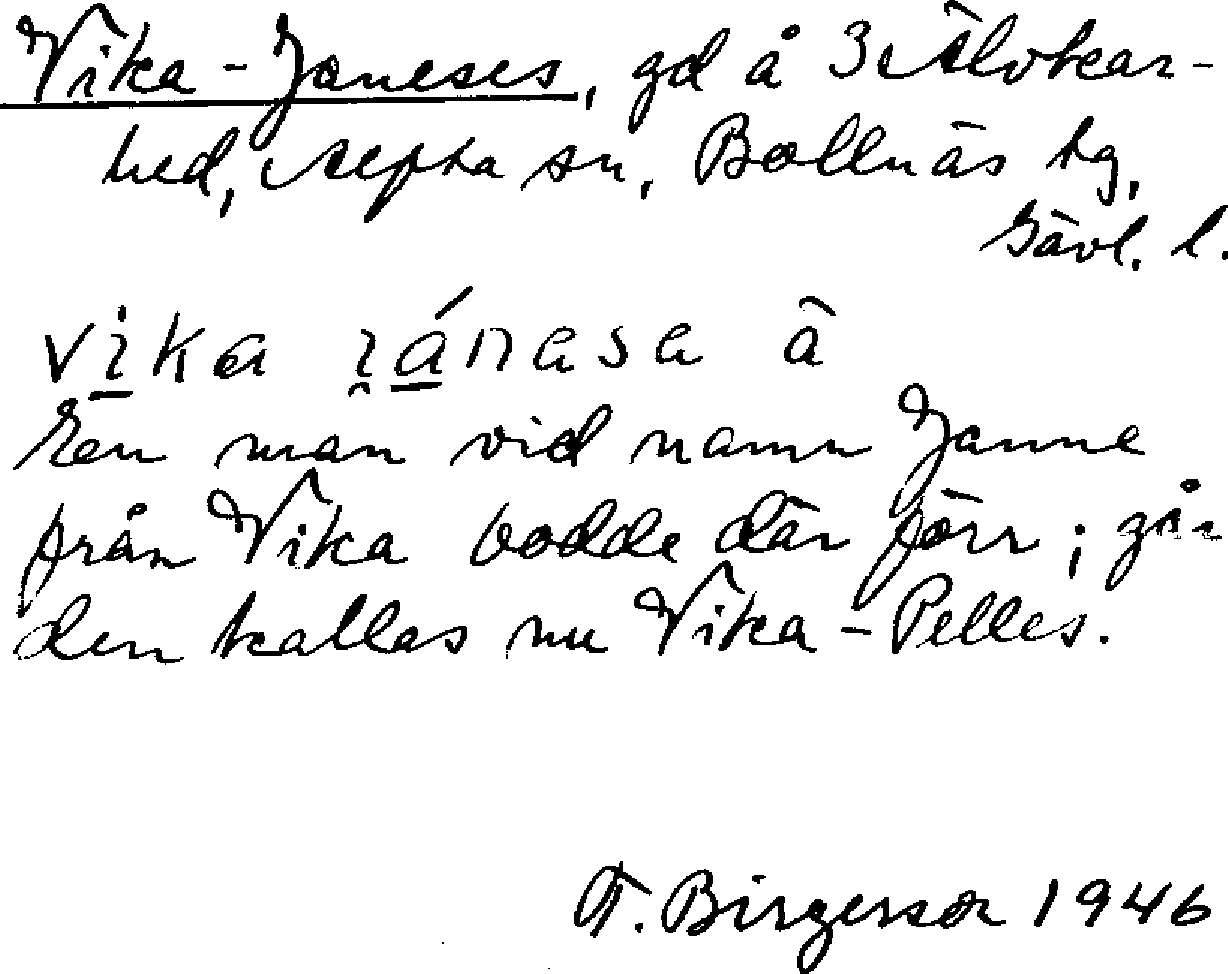 Vika-Janeses, gd å 3 Älvkar-
hed, Alfta sn, Bollnäs tg,
Gävl. l.
vika i̯ánasa â
En man vid namn Janne
från Vika bodde där förr; går-
den kallas nu Vika-Pelles.
F. Birgerson 1946